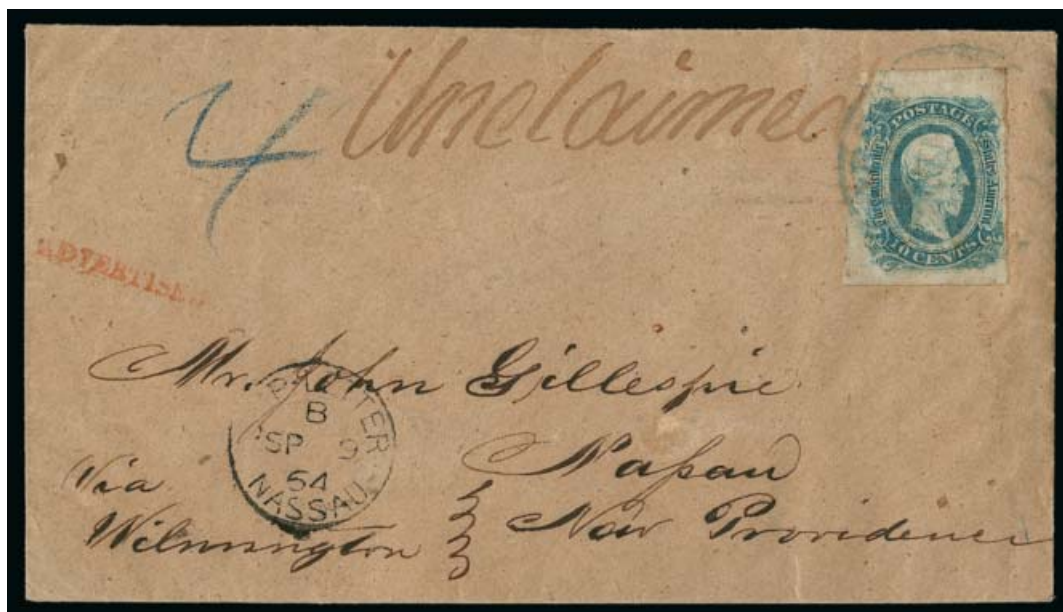 Unclaimed
4
POSTAGE
The Confederate States of America
10 CENTS
ADVERTISED
Mr. John Gillespie
Nassau
New Providence
Via
Wilmington
B
SP 9
64
NASSAU